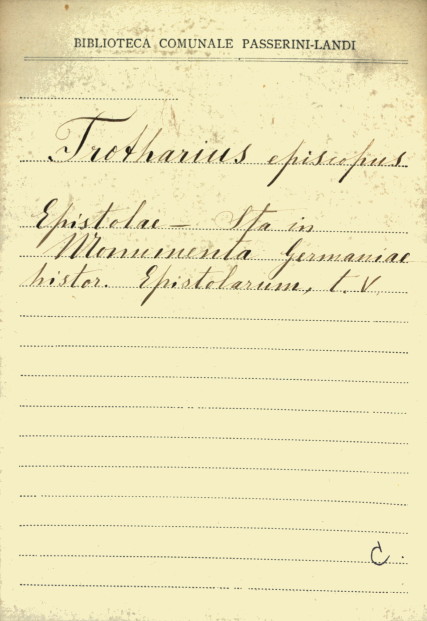 BIBLIOTECA COMUNALE PASSERINI-LANDI
Trotharius episcopus
Epistolae – Sta in
Monumenta Germaniae
histor. Epistolarum, t. V
C.